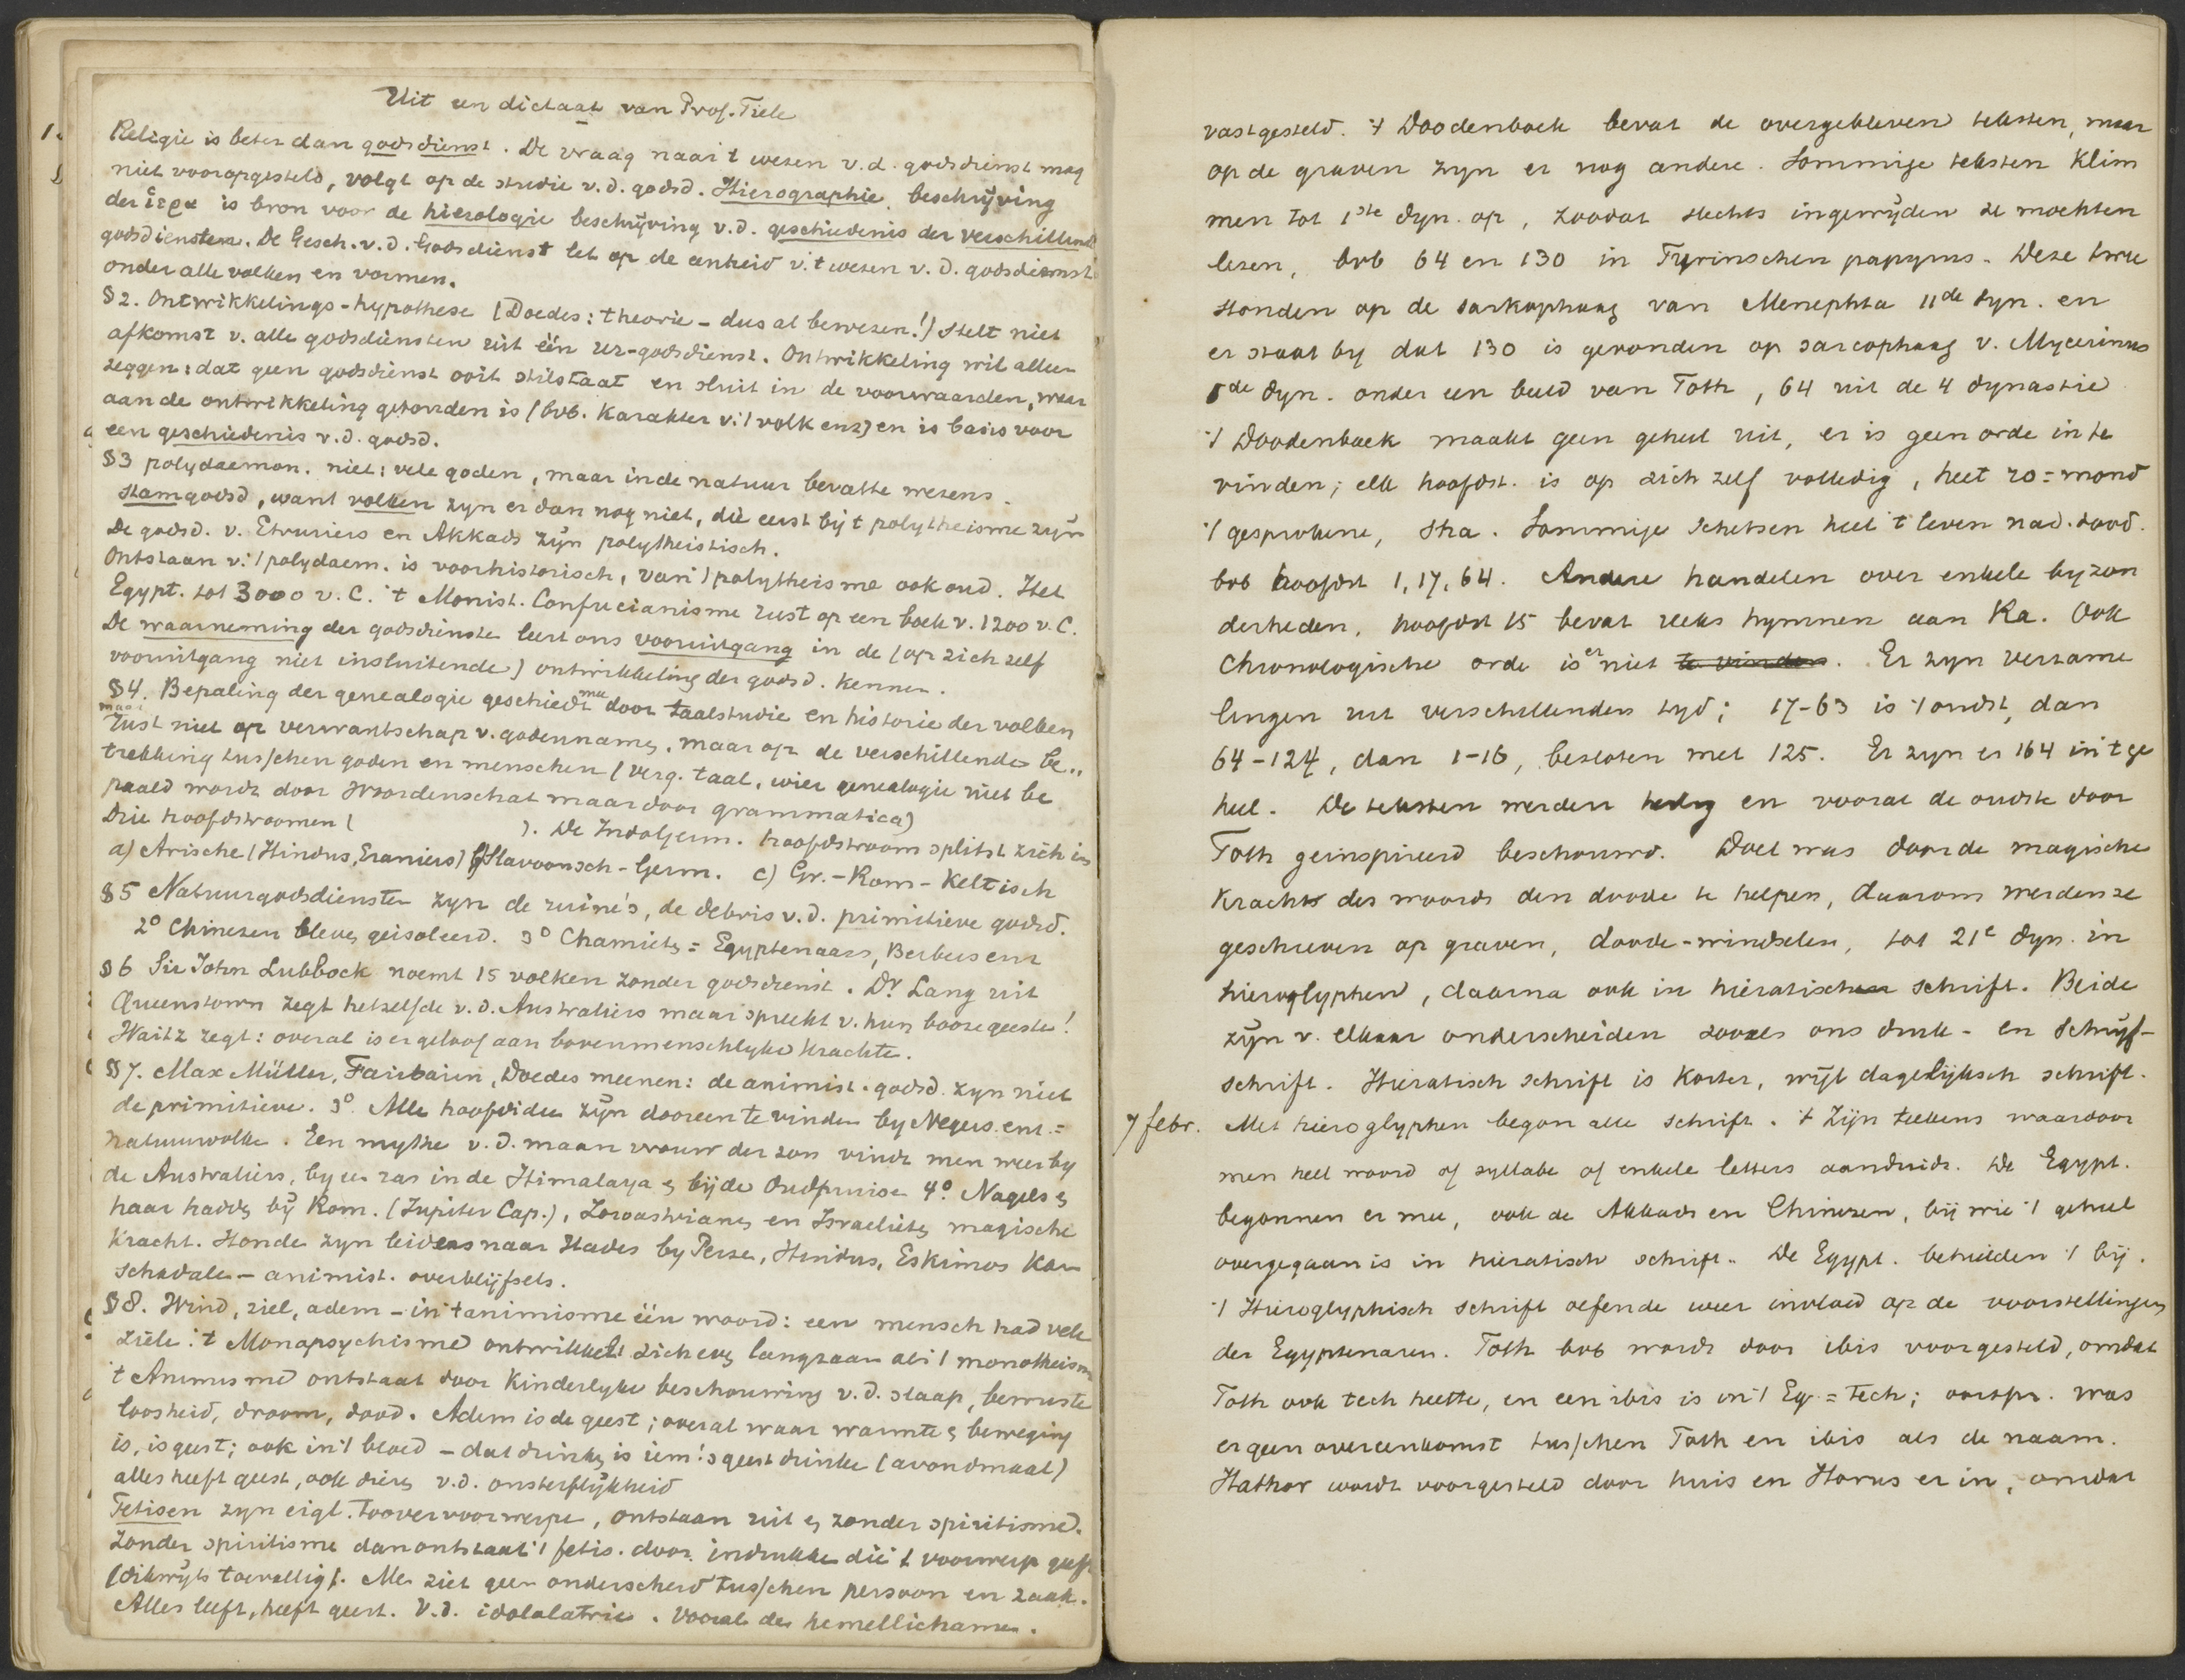 Uit een dictaat van Prof. Tiele
Religie is beter dan godsdienst. De vraag naar 't wezen v.d. godsdienst mag
niet vooropgesteld, volgt op de studie v.d. godsd. Hierographie, beschrijving
der ἱερα is bron voor de hierologie beschrijving v.d. geschiedenis der verschillende
godsdiensten. De Gesch. v.d. Godsdienst let op de eenheid v.'t wezen v.d. godsdienst
onder alle volken en vormen.
§2. Ontwikkelings-hypothese (Doedes: theorie - dus al bewezen!) stelt niet
afkomst v. alle godsdiensten uit één ur-godsdienst. Ontwikkeling wil alleen
zeggen: dat geen godsdienst ooit stilstaat en sluit in de voorwaarden, waar
aan de ontwikkeling gebonden is (bvb. karakter v.'t volk enz) en is basis voor
een geschiedenis v.d. godsd.
§3 polydaemon. niet: vele goden, maar in de natuur bevatte wezens.
Stamgodsd, want volken zyn er dan nog niet, die eerst bij 't polytheisme zyn
De godsd. v. Etruriers en Akkads zijn polytheistisch.
Ontstaan v.'t polydaem. is voorhistorisch, van 't polytheisme ook oud. Het
Egypt. tot 3000 v. C. 't Monist. Confucianisme rust op een boek v. 1200 v. C.
De waarneming der godsdienste leert ons vooruitgang in de (op zich zelf
vooruitgang niet insluitende) ontwikkeling der godsd. kennen.
§4. Bepaling der genealogie geschiedt mee door taalstudie en historie der volken
maar
rust niet op verwantschap v. godennamen, maar op de verschillende be„
trekking tusschen goden en menschen (verg. taal, wier genealogie niet be
paald wordt door Woordenschat maar door grammatica)
Drie hoofdstroomen ( ). De Indogerm. hoofdstroom splitst zich in
a) Arische (Hindus, Eraniers) b) Slavoonsch-Germ. c) Gr.-Rom-Keltisch
§5 Natuurgodsdiensten zyn de ruïne's, de debris v.d. primitieve godsd.
2° Chinezen bleven geisoleerd. 3° Chamieten = Egyptenaars, Berbers enz
§6 Sir John Lubbock noemt 15 volken zonder godsdienst. Dr Lang uit
Queenstown zegt hetzelfde v.d. Australiers maar spreekt v. hun booze geesten!
Waitz zegt: overal is er geloof aan bovenmenschlyke krachte.
§7. Max Müller, Fairbairn, Doedes meenen: de animist. godsd. zyn niet
de primitieve. 3° Alle hoofdidee zijn dooreen te vinden by Negers enz. =
natuurvolke. Een mythe v.d. maan vrouw der zon vindt men weer by
de Australiers, by een ras in de Himalaya en bij de Oudpruise 4° Nagels en
haar hadden bij Rom. (Jupiter Cap.), Zoroastrianen en Israelieten magische
kracht. Honde zyn leiders naar Hades by Perze, Hindus, Eskimos Kam
schadale - animist. overblijfsels.
§8. Wind, ziel, adem - in 't animisme één woord: een mensch had vele
ziele. 't Monopsychisme ontwikkelt zich even langzaam als 't monotheisme
't Animisme ontstaat door kinderlyke beschouwing v.d. slaap, bewuste
loosheid, droom, dood. Adem is de geest; overal waar warmte en beweging
is, is geest; ook in 't bloed - dat drinken is iem.'s geest drinke (avondmaal)
alles heeft geest, ook dieren v.d. onsterflijkheid
Fetisen zyn eigl. Toovervoorwerpe, ontstaan uit en zonder spiritisme.
Zonder spiritisme dan ontstaat 't fetis. door indrukke die 't voorwerp geeft
(dikwyls toevallig). Men ziet geen onderscheid tusschen persoon en zaak.
Alles leeft, heeft geest. V.d. idololatrie. Vooral der hemellichamen.
vastgesteld. 't Doodenboek bevat de overgebleven teksten, maar
op de graven zyn er nog andere. Sommige teksten klim
men tot 1ste dyn. op, zoodat slechts ingewijden ze mochten
lezen, bvb 64 en 130 in Tyrinschen papyrus. Deze twee
stonden op de sarkophaag van Menephta 11de dyn. en
er staat by dat 130 is gevonden op sarcophaag v. Mycerinus
5de dyn. onder een beeld van Toth, 64 uit de 4 dynastie
't Doodenboek maakt geen geheel uit, er is geen orde in te
vinden; elk hoofdst. is op zich zelf volledig, heet ro = mond
't gesprokene, sha. Sommige schetsen heel 't leven na d. dood.
bvb hoofdst 1, 17, 64. Andere handelen over enkele byzon
derheden, hoofdst 15 bevat reeks hymnen aan Ra. Ook
chronologische orde is er niet te vinden. Er zyn verzame
lingen uit verschillenden tyd; 17-63 is 't oudst, dan
64-124, dan 1-16, besloten met 125. Er zyn er 164 in 't ge
heel. De teksten werden heilig en vooral de oudste door
Toth geinspireerd beschouwd. Doel was door de magische
kracht des woords den doode te helpen, daarom werden ze
geschreven op graven, doode-windselen, tot 21e dyn. in
hieroglyphen, daarna ook in hieratisch schrift. Beide
zijn v. elkaar onderscheiden zooals ons druk- en schrijf-
schrift. Hieratisch schrift is korter, wijl dagelijksch schrift.
7 febr. Met hieroglyphen begon alle schrift. 't Zijn teekens waardoor
men heel woord of syllabe of enkele letters aanduidt. De Egypt.
begonnen er mee, ook de Akkads en Chinezen, bij wie 't geheel
overgegaan is in hieratisch schrift. De Egypt. behielden 't bij.
't Hieroglyphisch schrift oefende weer invloed op de voorstellingen
der Egyptenaren. Toth bvb wordt door ibis voorgesteld, omdat
Toth ook tech heette, en een ibis is in 't Eg. = tech; oorspr. was
er geen overeenkomst tusschen Toth en ibis als de naam.
Hathor wordt voorgesteld door huis en Horus er in, omdat